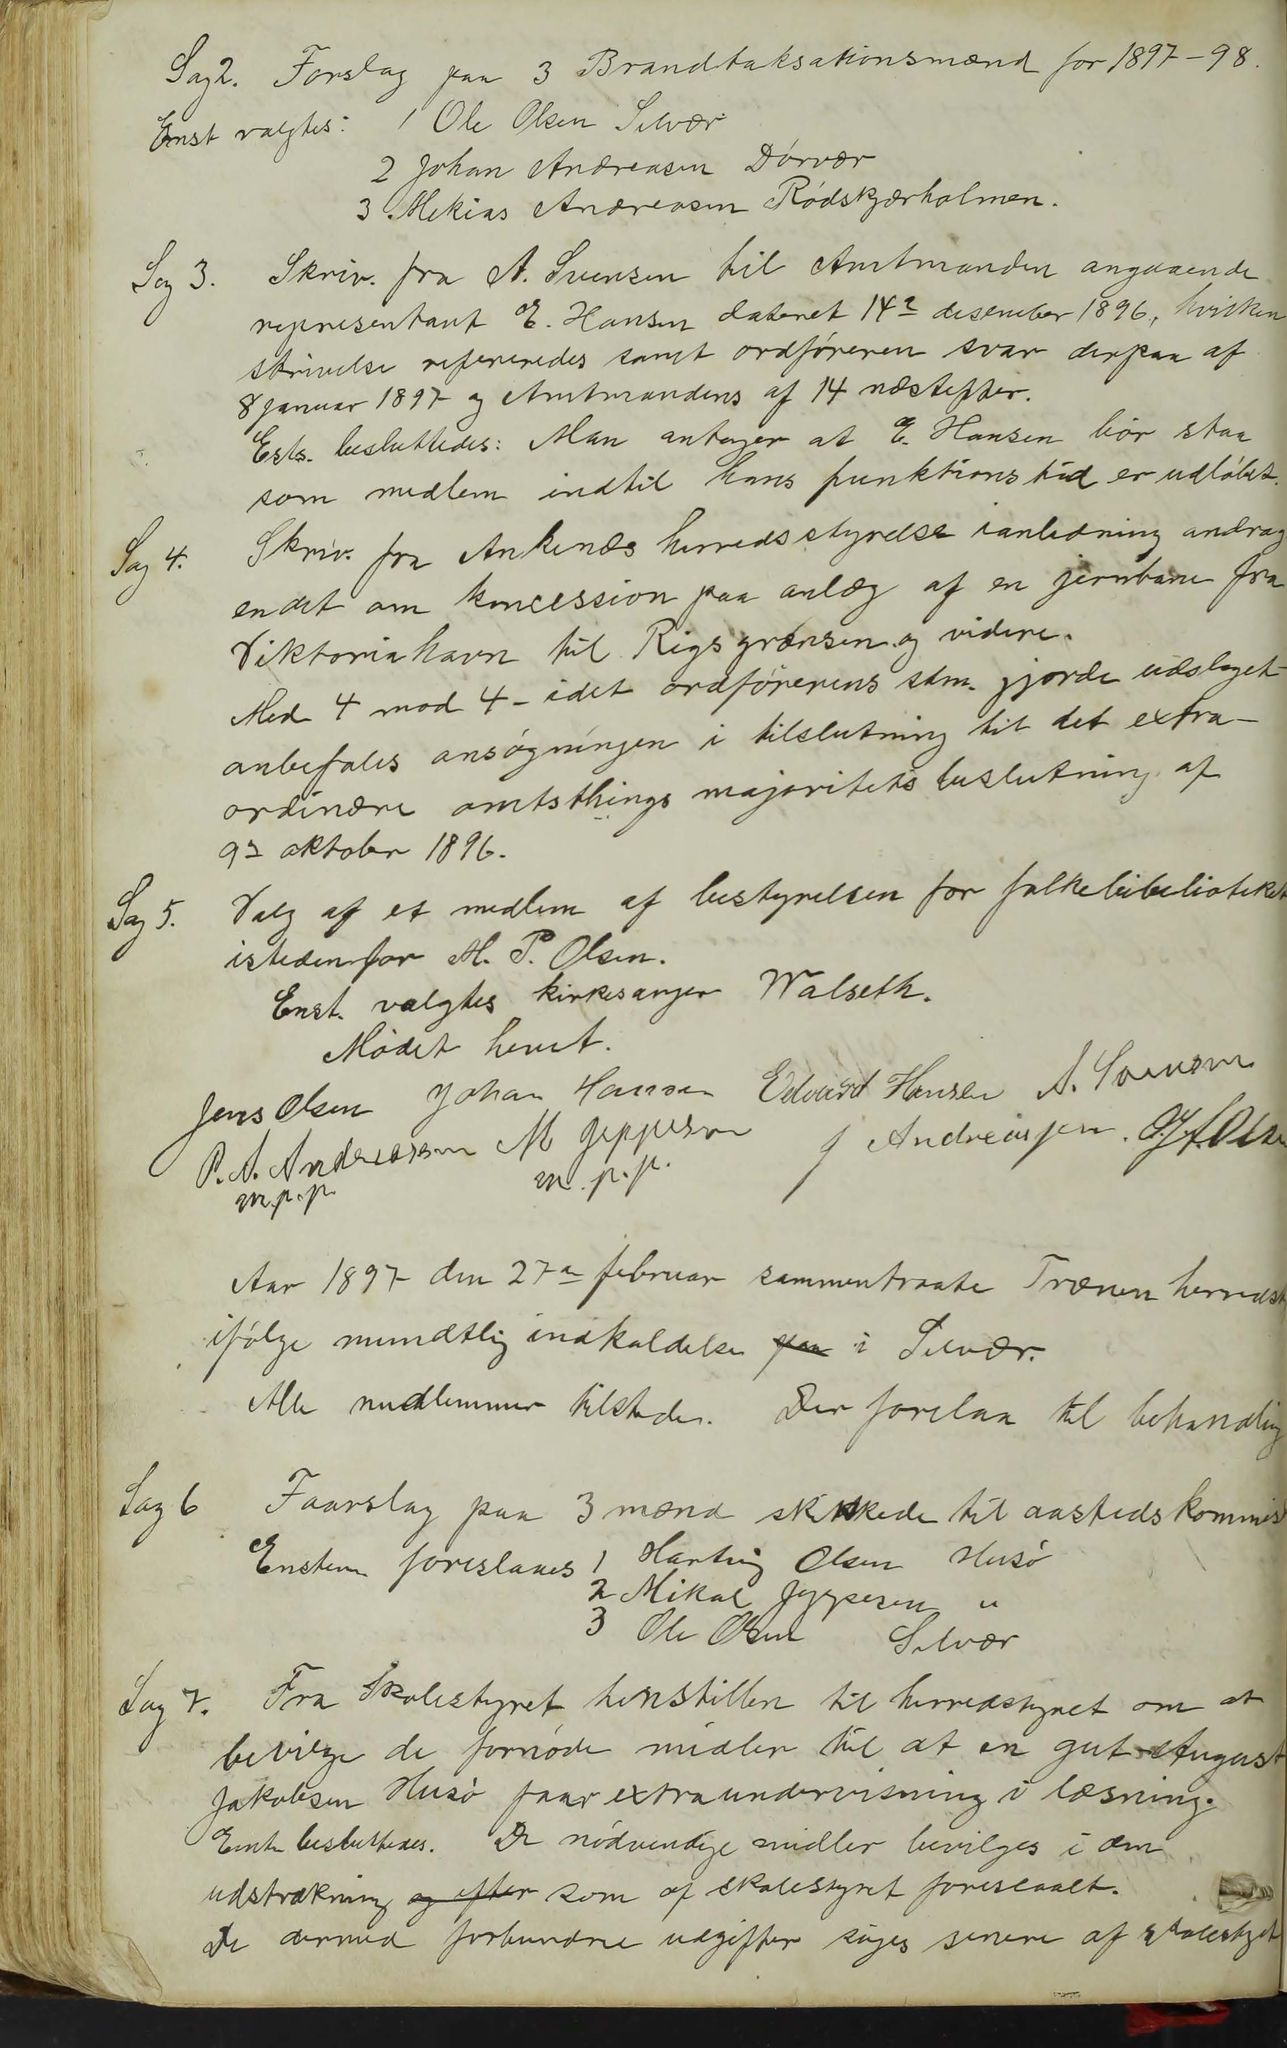 Sag 2. Forslag paa 3 Brandtaksationsmænd for 1897-98.
Enst valgtes: 1 Ole Olsen Selvær
2 Johan Andreasen Dørvær
3 Mekias Andreasen Rødskjærholmen.
Sag 3. Skriv. fra A. Svensen til Amtmanden angaaende
representant E. Hansen dateret 14de desember 1896, hvilken
skrivelse refereredes samt ordføreren svar derpaa af
8 januar 1897 og Amtmandens af 14 næstefter.
Ests. besluttedes: Man antager at E. Hansen bør staa
som medlem indtil hans funktionstid er udløbet.
Sag 4. Skriv. fra Ankenæs herredsstyrelse ianledning andrag
endet om koncession paa anlæg af en jernbane fra
Viktoriahavn til Rigsgrænsen og videre.
Med 4 mod 4 - idet ordførerens stm. gjorde udslaget -
anbefales ansøgningen i tilslutning til det extra-
ordinære amtsthings majoritets beslutning af
9de oktober 1896.
Sag 5. Valg af et medlem af bestyrelsen for folkebibelioteket
istedenfor M. P. Olsen.
Enst. valgtes kirkesanger Walseth.
Mødet hevet.
Jens Olsen Johan Hansen Edvard Hansen A. Svensen
P. A. Andreassen M Jeppesen J Andreassen.
m.p.p. m.p.p.
Aar 1897 den 27de februar sammentraate Trænen herredst
ifølge mundtlig indkaldelse paa i Selvær.
Alle medlemmer tilstede. Der forelaa til behandling
Sag 6 Faarslag paa 3 mænd skikkede til aastedskommis
Enstem foreslaaes 1 Hartvig Olsen Husø
2 Mikal Jeppesen "
3 Ole Olsen Selvær
Sag 7. Fra Skolestyret henstillen til herredstyret om at
bevilge de fornøde midler til at en gut August
Jakobsen Husø faar extraundervisning i læsning.
Enst. besluttedes. De nødvendige midler bevilges i den
udstrækning og efter som af skolestyret foreslaaet.
De dermed forbundne udgifter søges senere af skolestyret